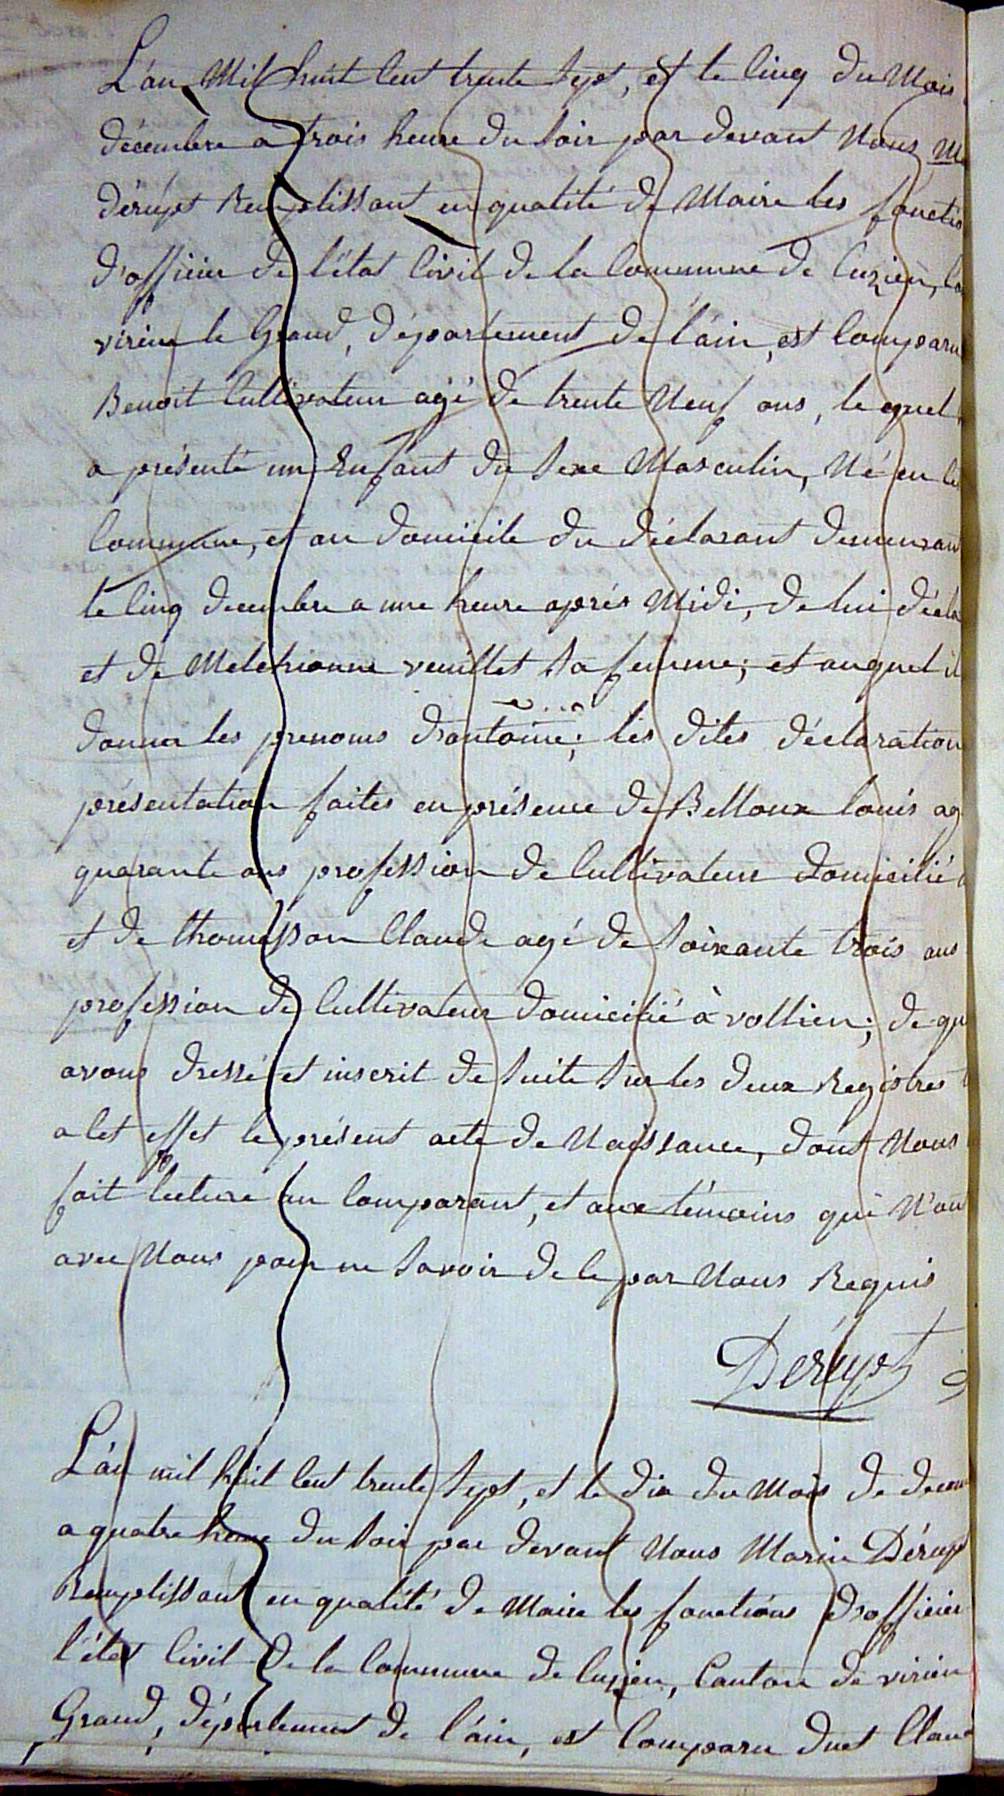 L'an Mil huit Cent trente Sept, et le Cinq du Mois
décembre a trois heure du Soir par devant Nous
dérupt Remplissant en qualité de Maire les fonctio
d'officier de l'état Civil de la Commune de Cuzieu,
virieu le Grand, département de l'ain, est Comparu
Benoit Cultivateur agé de trente Neuf ans, le quel
a présenté un Enfant du Sexe Masculin, Né en
Commune, et au domicile du déclarant demeurant
le Cinq decembre a une heure aprés Midi, de lui décla
et de Melchionne veuillet Sa femme; et auquel il
donner les prenoms d'antoine; les dites déclaration
présentation faites en présence de Belloux Louis ag
quarante ans profession de Cultivateur domicilié
et de thomasson Claude agé de Soixante trois ans
profession de Cultivateur domicilié à vollien; de qu
avons dressé et inscrit de Suite Sur les deux Registres
a Cet effet le présent acte de Naissance, dont Nous
fait lecture au Comparant, et aux témoins qui N'ont
avec Nous pour ne Savoir de ce par Nous Requis
Dérupt
L'an mil huit Cent trente Sept, et le dix du Mois de decem
a quatre heure du Soir par devant Nous Marin Dérupt
Remplissant en qualité de Maire les fonctions d'officier
l'état Civil de la Commune de Cuzieu, Canton de virieu
Grand, département de l'ain, est Comparu Claude